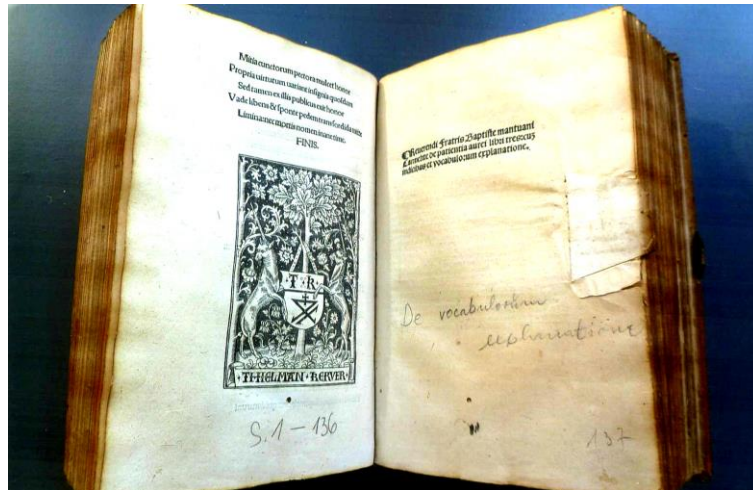 Mitia cunctorum pectora mulcet honor
Propria uirtutum uariant insignia quosdam
Sed tamen ex illis publicus exit honor
Vade libens & sponte pedem transfer
Limina nec mortis nomen inane time.
FINIS.
·T·R·
·THIELMAN·KERVER·
S. 1 – 136
Reuerendi Fratris Baptiste mantuani
Carmelite de patientia aurei libri tres: cum
indicibus et vocabulorum explanatione.
De vocabulorum
explanatione
137